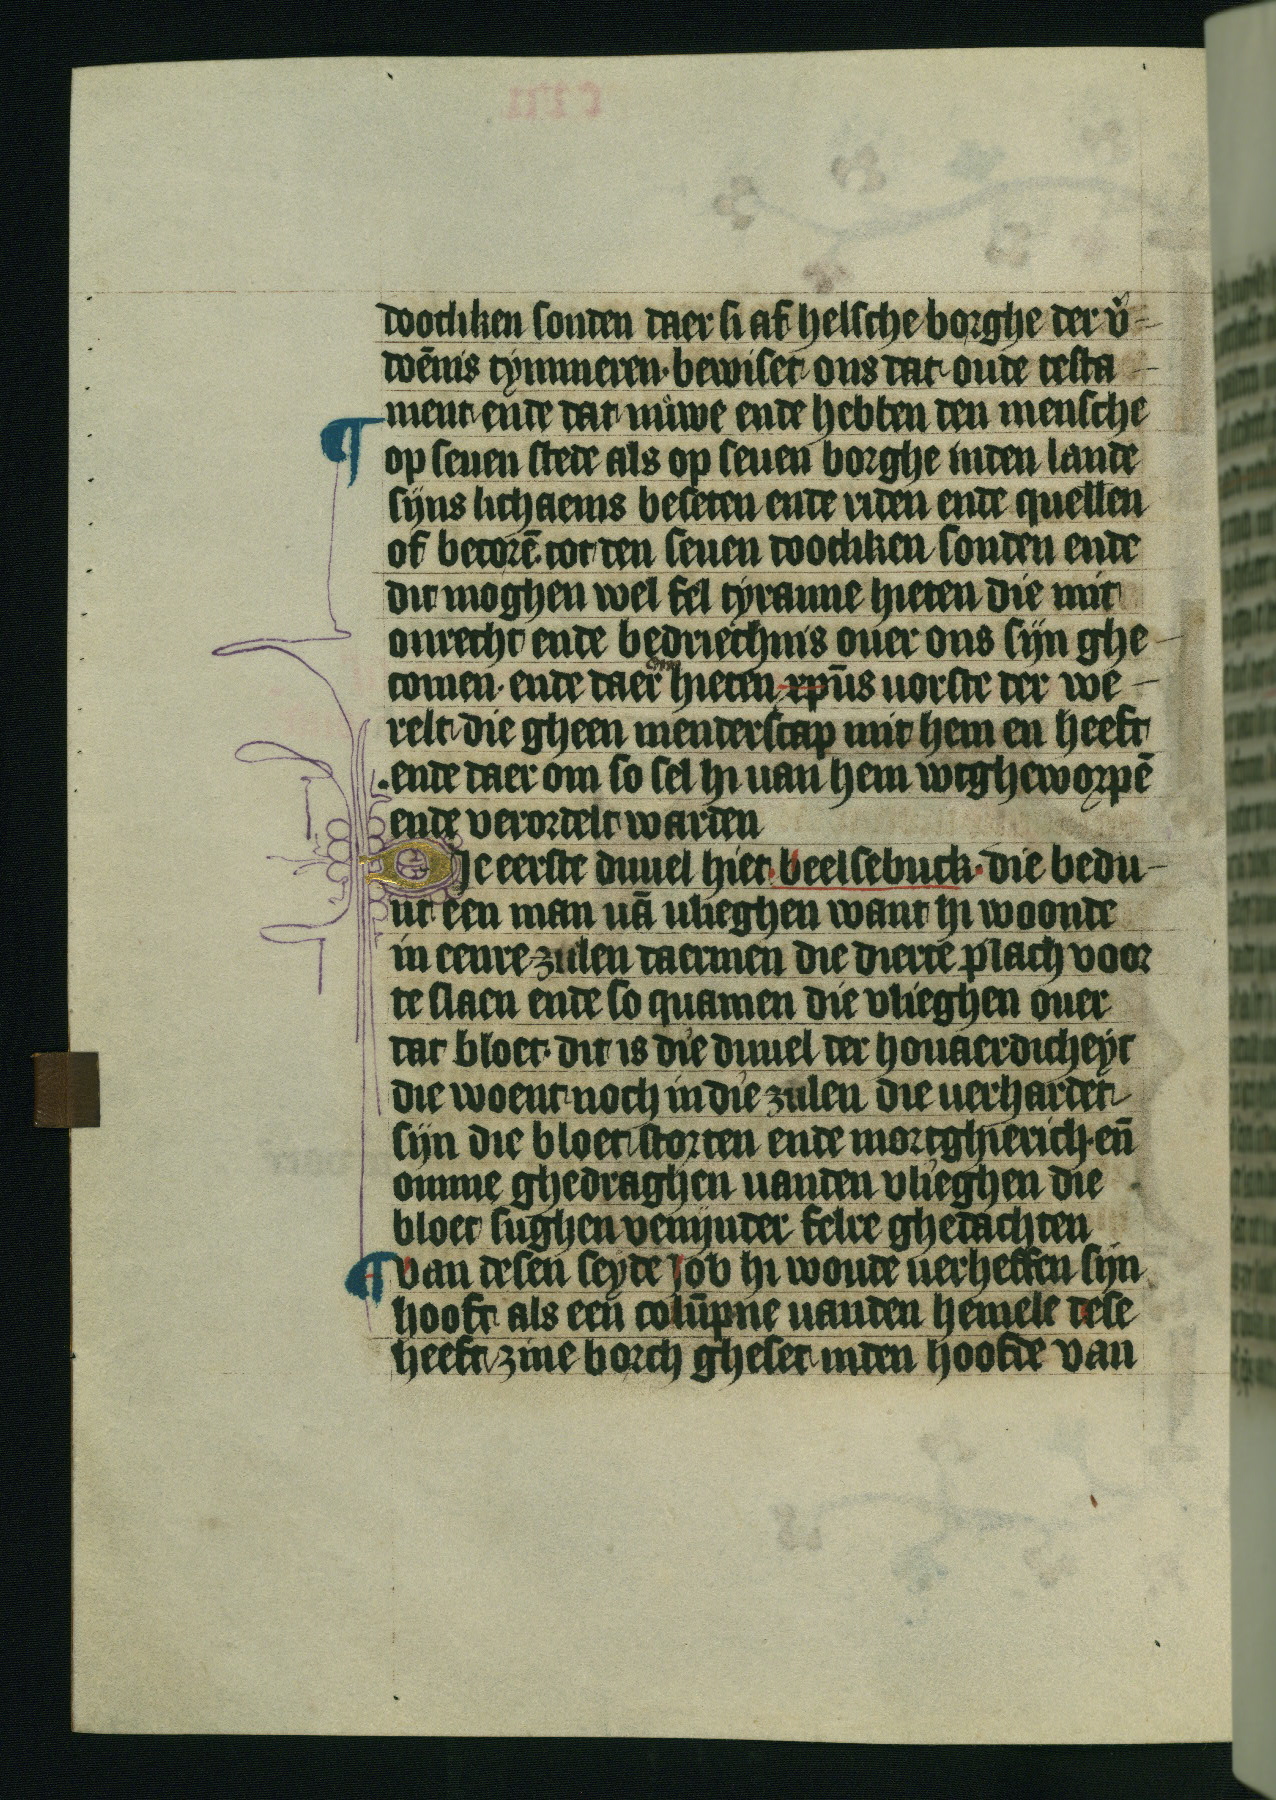 dootliken sonden daer si af helsche borghe der v̊
doēnis tymmeren· bewiset ons dat oude testa
ment ende dat nůwe ende hebben den mensche
¶ op seuen stede als op seuen borghe inden lande
sijns lichaems beseten ende riden ende quellen
of becorē tot den seuen dootliken sonden ende
dit moghen wel fel tyranne hieten die mit
onrecht ende bedriechnis ouer ons sijn ghe
comen· ende daer om hieten xpūs vorste der we
relt die gheen menderscap mit hem en heeft
·ende daer om so sel hi uan hem wtgheworpē
ende verordelt warden
Die eerste duuel hiet· beelsebuck· die bedu
ut een man uā vlieghen want hi woonde
in eenre zulen daermen die dierte plach voor
te slaen ende so quamen die vlieghen ouer
dat bloet· dit is die duuel der houaerdicheyt
die woent noch in die zulen die uerhardet
sijn die bloet storten ende mortghierich· eñ
omme ghedraghen uanden vlieghen die
bloet sughen venijnder felre ghedachten
¶ van desen seyde Job hi woude uerheffen sijn
hooft als een colūpne uanden hemele dese
heeft zine borch gheset inden hoofde van